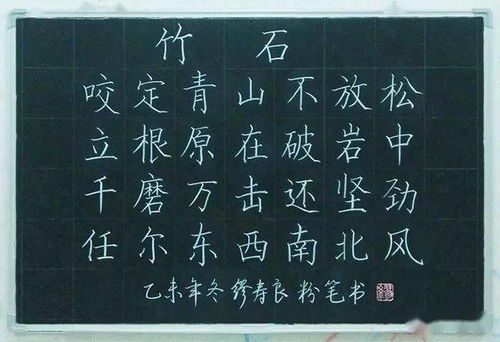 竹石
咬定青山不放松
立根原在破岩中
千磨万击还坚劲
任尔东西南北风
乙未年冬 缪寿良 粉笔书